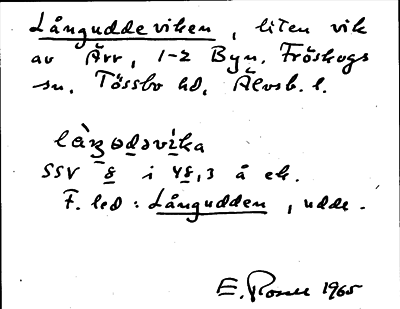 Långuddeviken, liten vik
av Ärr, 1-2 Byn. Fröskogs
sn. Tössbo hd, Älvsb. l.
làŋɷdəvìka
SSV 8 i 48,3 å ek.
F. led: Långudden, udde.
E. Rosell 1965